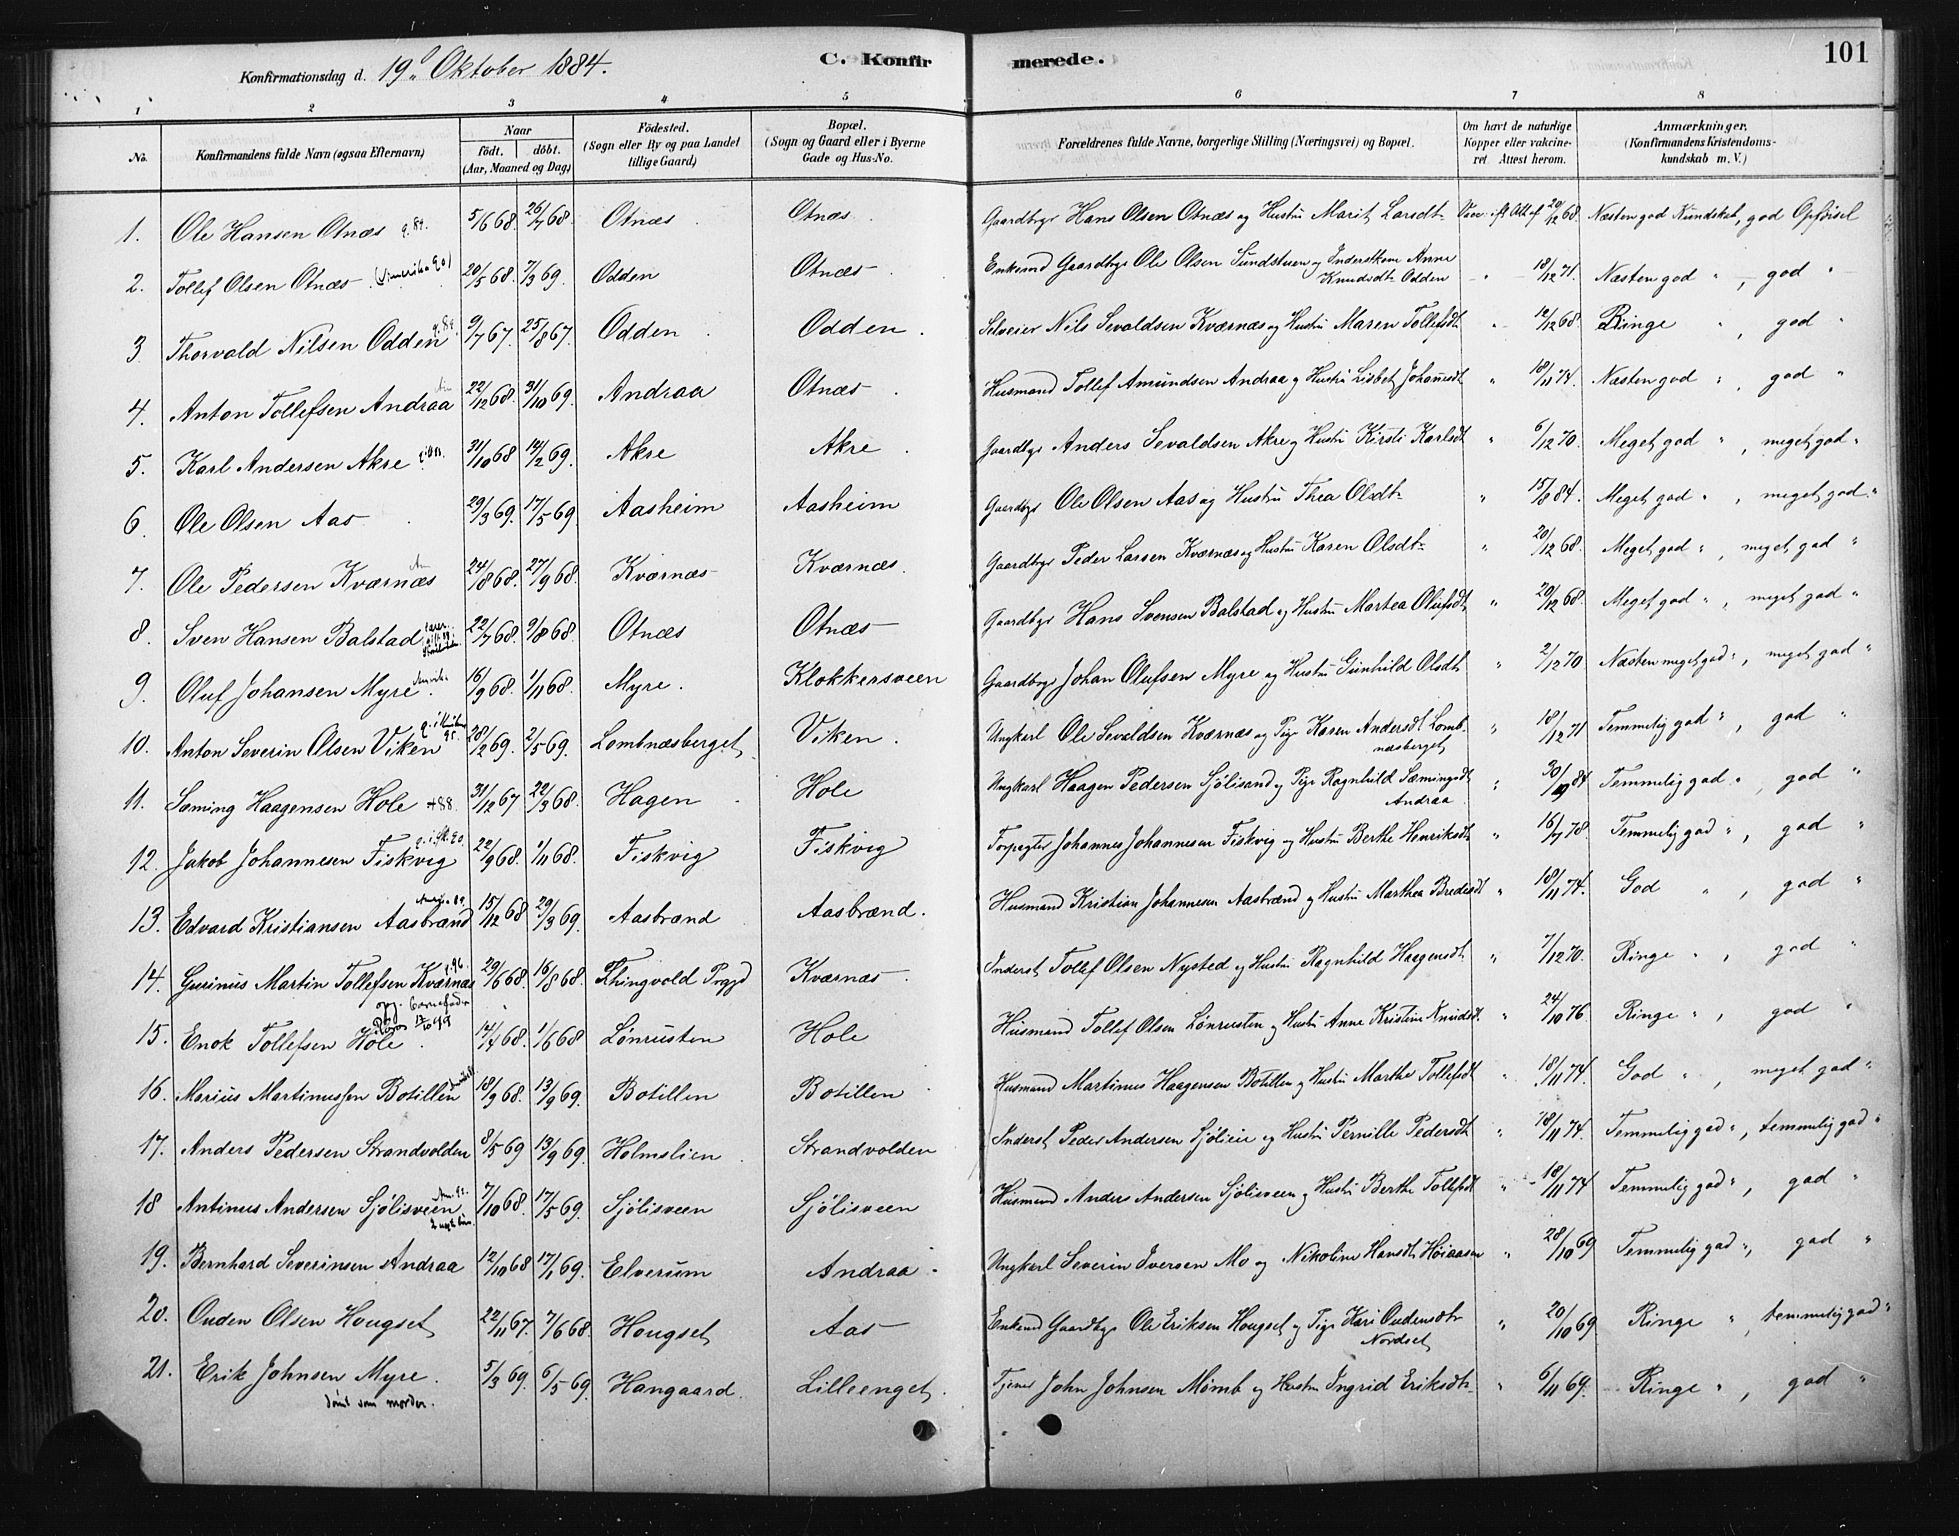 Konfirmationsdag d. 19d Oktober 1884. C. Konfirmerede. 101
1 2 3 4 5 6 7 8
No. Konfirmandens fulde Navn (ogsaa Efternavn) Naar født. døbt. (Aar, Maaned og Dag) Fødested. (Sogn eller By og paa Landet tillige Gaard) Bopæl. (Sogn og Gaard eller i Byerne Gade og Hus-No. Forældrenes fulde Navne, borgerlige Stilling (Næringsvei) og Bopæl. Om havt de naturlige Kopper eller vakcineret Attest herom. Anmærkninger. (Konfirmandens Kristendomskundskab m. V.)
1. Ole Hansen Otnæs g. 89. 5/6 68. 26/7 68. Otnæs Otnæs Gaardbgr Hans Olsen Otnæs og Hustru Marit Larsdt 20/12 68. Næsten god Kundskab, god Opførsel
2. Tollef Olsen Otnæs (Amerika 90) 20/5 68. 7/3 69. Odden Otnæs Enkemd Gaardbgr Ole Olsen Sundstuen og Inderstkone Anne Knudsdt Odden 18/12 71. Næsten god " , god "
3. Thorvald Nilsen Odden 9/7 67. 25/8 67. Odden Odden Selveier Nils Sevaldsen Kværnæs og Hustru Maren Tollefsdt " 12/12 68. Ringe " , god "
4. Anton Tollefsen Andraa 22/12 68. 31/10 69. Andraa Otnæs Husmand Tollef Amundsen Andraa og Hustru Lisbet Johansdt " 18/11 74. Næsten god " , god "
5. Karl Andersen Akre 31/10 68 14/2 69. Akre Akre Gaardbgr Anders Sevaldsen Akre og Hustru Kirsti Karlsdt " 6/12 70. Meget god " , meget god "
6. Ole Olsen Aas 29/3 69. 17/5 69. Aasheim Aasheim Gaardbgr Ole Olsen Aas og Hustru Thea Olsdt " 15/8 84. Meget god " , meget god "
7. Ole Pedersen Kværnæs Am 24/8 68. 27/9 68. Kværnæs Kværnæs. Gaardbgr Peder Larsen Kværnæs og Hustru Karen Olsdt " 20/12 68. Meget god " , meget god "
8. Sven Hansen Balstad 22/7 68. 9/8 68. Otnæs Otnæs Gaardbgr Hans Svensen Balstad og Hustru Martea Olufsdt " 20/12 68. Meget god " , meget god "
9. Oluf Johansen Myre. Amerika 16/9 68. 1/11 68. Myre. Klokkersveen Gaardbgr Johan Olufsen Myre og Hustru Gunhild Olsdt " 2/12 70 Næsten meget god " , meget god "
10. Anton Severin Olsen Viken 95. 28/2 69. 2/5 69. Lombnæsberget Viken. Ungkarl Ole Sevaldsen Kværnæs og Pige Karen Andersdt Lombnæsberget " 18/12 71 Temmelig god " , god "
11. Sæming Haagensen Hole +88. 31/12 67 22/3 68. Hagen Hole Ungkarl Haagen Pedersen Sjølisand og Pige Ragnhild Sæmingsdt Andraa " 84 Temmelig god " , god "
12. Jakob Johannesen Fiskvig 22/9 68. 1/11 68. Fiskvig Fiskvig Forpagter Johannes Johannesen Fiskvig og Hustru Berthe Henriksdt " 16/7 78. Temmelig god " , god "
13. Edvard Kristiansen Aasbrænd 89. 15/12 68 29/3 69. Aasbrænd Aasbrænd. Husmand Kristian Johannesen Aasbrænd og Hustru Marthea Bredesdt " 18/11 74. God " , god "
14. Gurinus Martin Tollefsen Kværnæs g. 96. 29/6 68. 16/8 68. Thingvold Prgjd Kværnæs Inderst Tollef Olsen Nysted og Hustru Ragnhild Haagensdt " 7/12 70. Ringe " , god "
15. Enok Tollefsen Hole. opg. barnefader 14/4 68. 1/6 68 Lønrusten Hole Husmand Tollef Olsen Lønrusten og Hustru Anne Kristine Knudsdt. " 24/10 76. Ringe " , god "
16. Marius Martinussen Botillen 18/9 68. 13/9 69. Botillen Botillen Husmand Martinus Haagensen Botillen og Hustru Marthe Tollefsdt " 18/11 74. God " , meget god "
17. Anders Pedersen Strandvolden 8/5 69 13/9 69. Holmslien Strandvolden Inderst Peder Andersen Sjølieie og Hustru Pernille Pedersdt " 18/11 74. Temmelig god " , temmelig god "
18 Antinus Andersen Sjølisveen 7/10 68. 17/5 69. Sjølisveen Sjølisveen Husmand Anders Andersen Sjølisveen og Hustru Berthe Tollefsdt " 18/11 74 Temmelig god " , god "
19. Bernhard Severinsen Andraa 12/10 68 17/1 69. Elverum Andraa Ungkarl Severin Iversen Mo og Nikoline Hansdt Høiaasen " 28/10 69 Temmelig god " , god "
20. Ouden Olsen Hougset 22/11 67. 7/6 68. Hougset Aas Enkemd Gaardbgr Ole Eriksen Hougset og Pige Kari Oudensdtr Nordset " 20/10 69 Ringe " , temmelig god "
21. Erik Johnsen Myre. dømt som morder. 5/3 69. 6/5 69. Hangaard. Lilleenget. Tjener John Johnsen Mømb og Hustru Ingrid Eriksdt " 6/11 69. Ringe " , god "